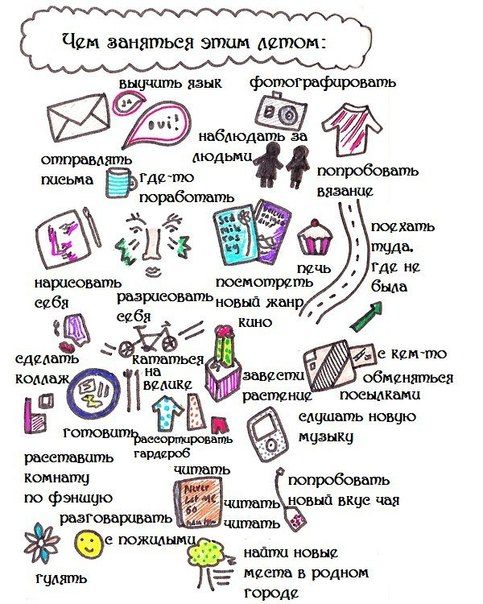 Чем заняться этим летом:
выучить язык
фотографировать
ja
oui!
отправлять
письма
где-то
поработать
наблюдать за
людьми
попробовать
вязание
нарисовать
себя
разрисовать
себя
посмотреть
новый жанр
кино
печь
поехать
туда,
где не
была
сделать
коллаж
кататься
на
велике
завести
растение
с кем-то
обменяться
посылками
готовить
рассортировать
гардероб
слушать новую
музыку
расставить
комнату
по фэншую
читать
Never
Let me
Go
читать
читать
попробовать
новый вкус чая
разговаривать
с пожилыми
гулять
найти новые
места в родном
городе